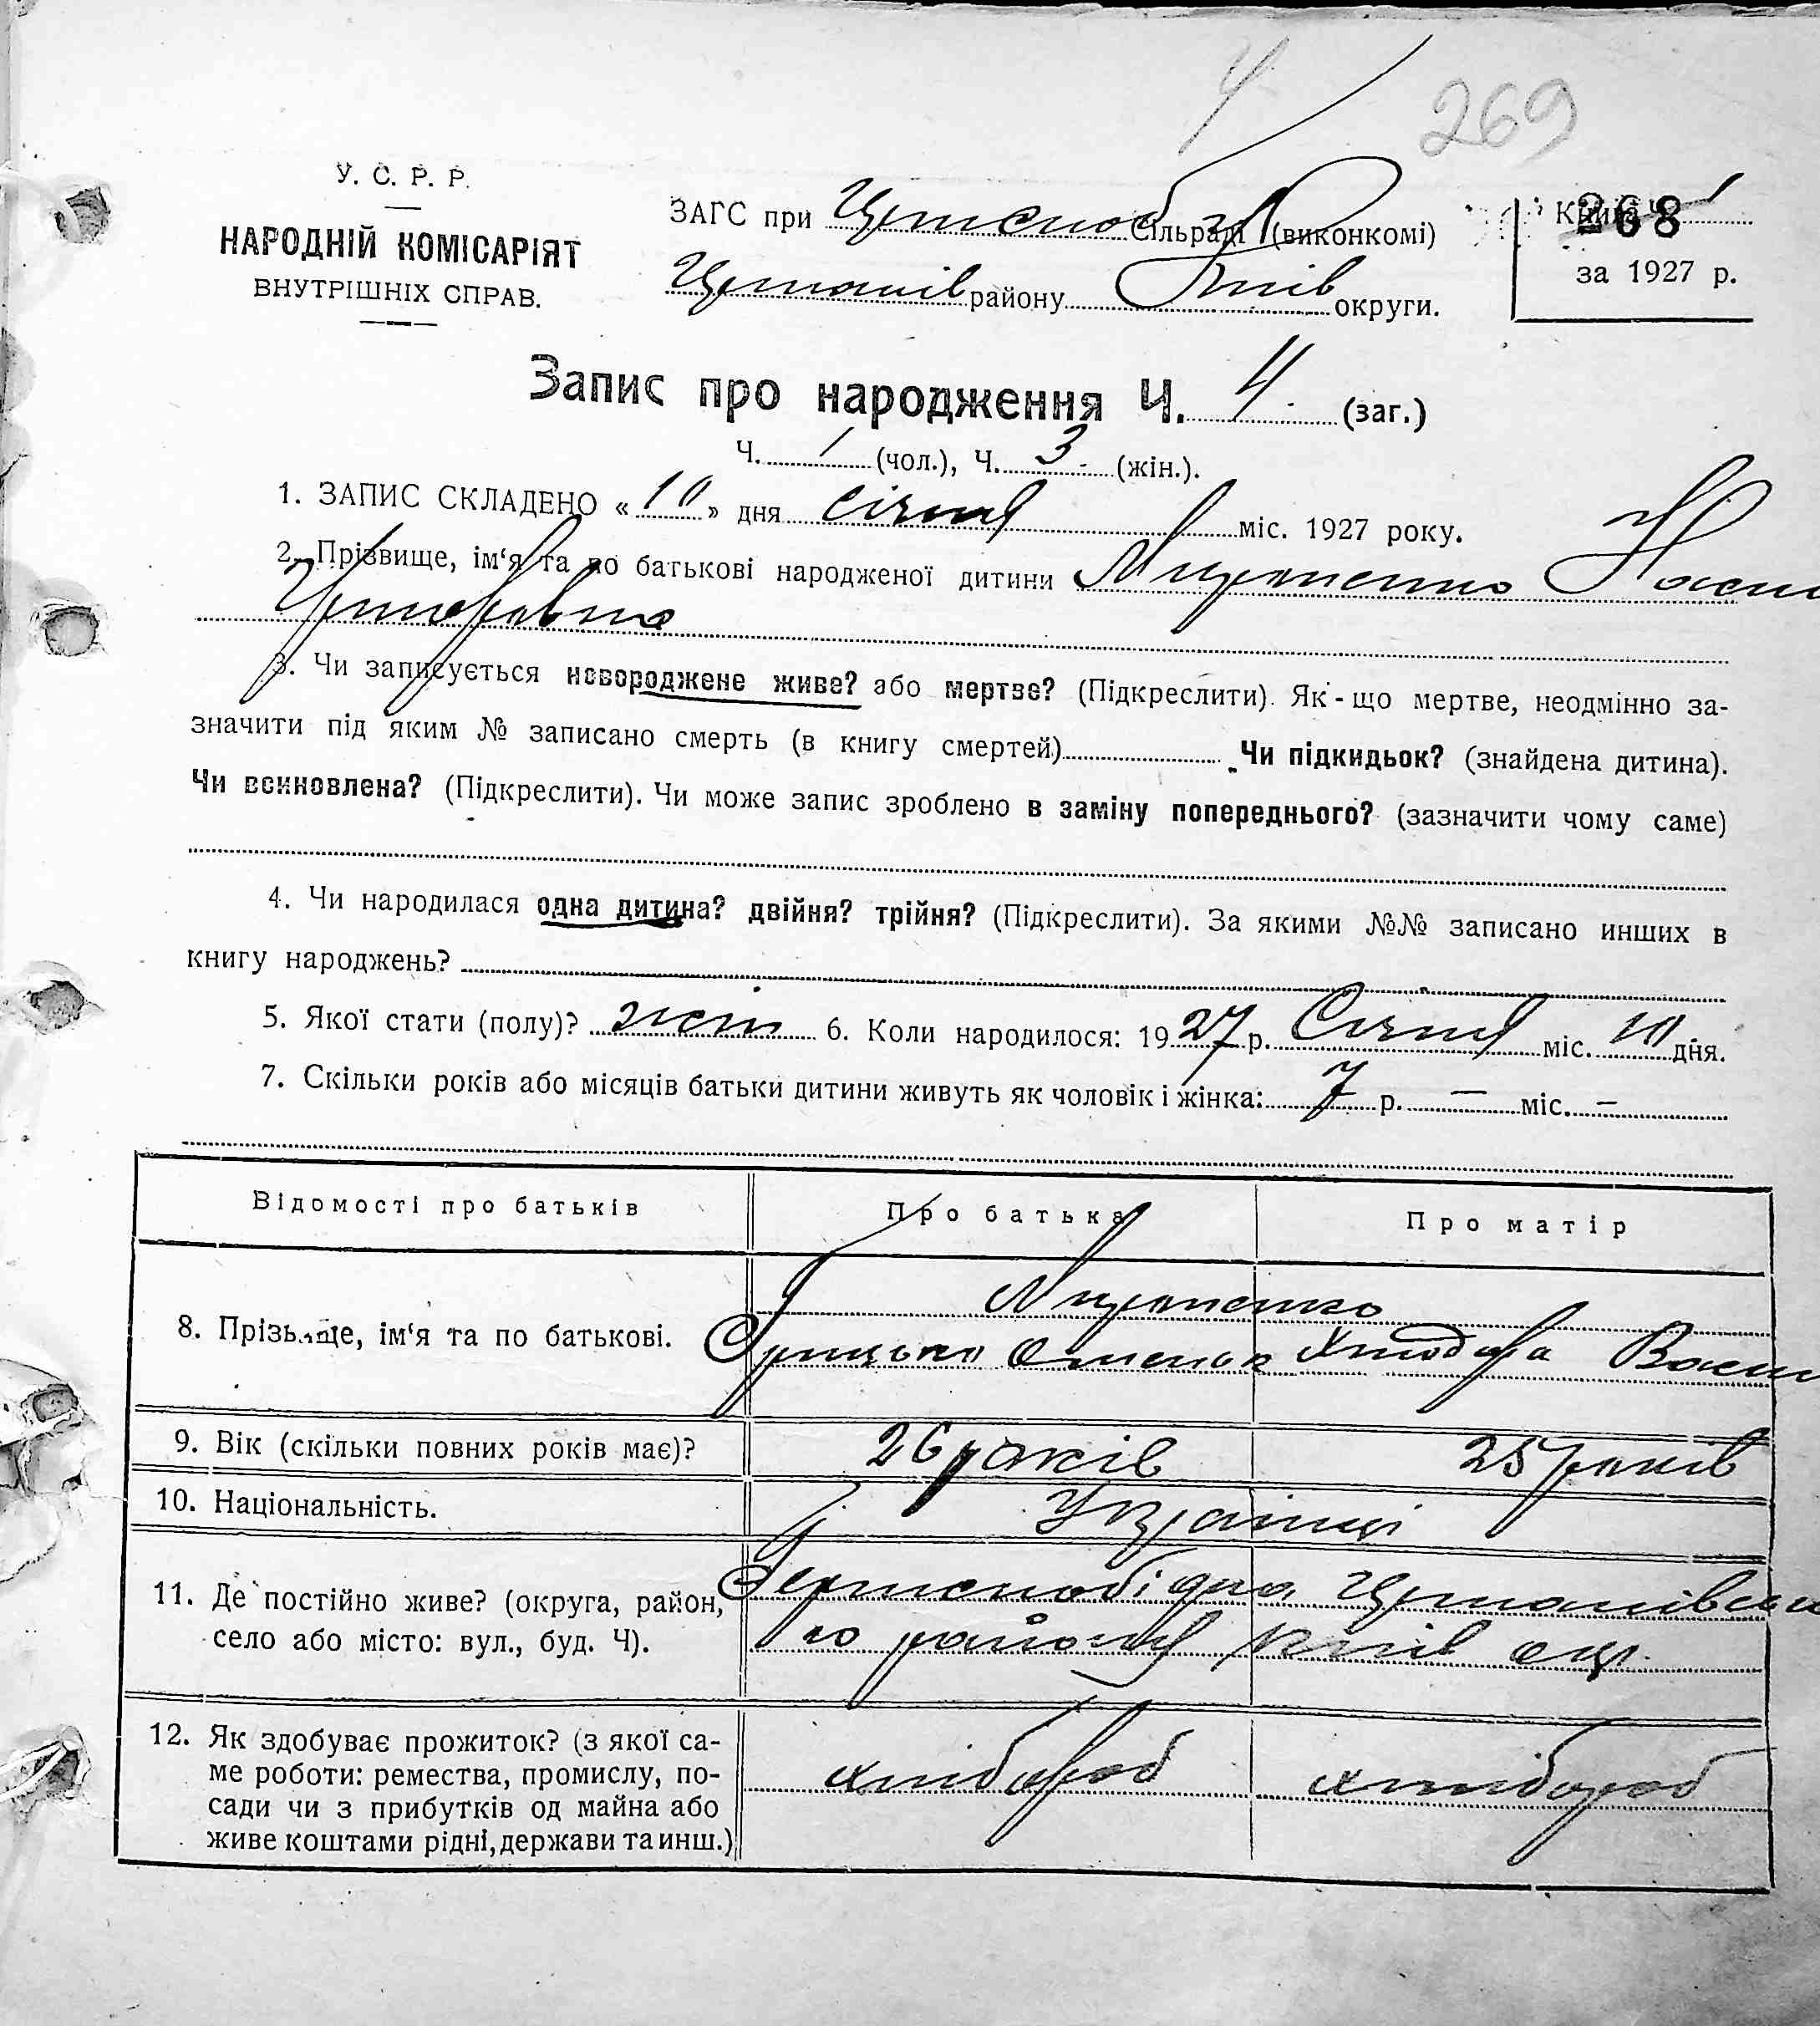 4
269
У. С. Р. Р.
НАРОДНІЙ КОМІСАРІЯТ
ВНУТРІШНІХ СПРАВ.
ЗАГС при Сільраді (виконкомі)
району Київ округи.
Книга Ч. 1
268
за 1927 р.
Запис про народження Ч. 4 (заг.)
Ч. 1 (чол.), Ч. 3 (жін.).
1. ЗАПИС СКЛАДЕНО « 10 » дня січня міс. 1927 року.
2. Прізвище, ім‘я та по батькові народженої дитини
3. Чи записується новороджене живе? або мертве? (Підкреслити). Як-що мертве, неодмінно за-
значити під яким № записано смерть (в книгу смертей) Чи підкидьок? (знайдена дитина).
Чи всиновлена? (Підкреслити). Чи може запис зроблено в заміну попереднього? (зазначити чому саме)
4. Чи народилася одна дитина? двійня? трійня? (Підкреслити). За якими №№ записано инших в
книгу народжень?
5. Якої стати (полу)? жін 6. Коли народилося: 1927 р. Січня міс. 10 дня.
7. Скільки років або місяців батьки дитини живуть як чоловік і жінка: 7 р. — міс. —
Відомості про батьків Про батька Про матір
8. Прізвище, ім‘я та по батькові.
Грицько Хтодора
9. Вік (скільки повних років має)? 26 років 25 років
10. Національність. Українці
11. Де постійно живе? (округа, район,
село або місто: вул., буд. Ч).
го району Київ окр.
12. Як здобуває прожиток? (з якої са-
ме роботи: ремества, промислу, по-
сади чи з прибутків од майна або
живе коштами рідні, держави та инш.)
хлібороб хлібороб